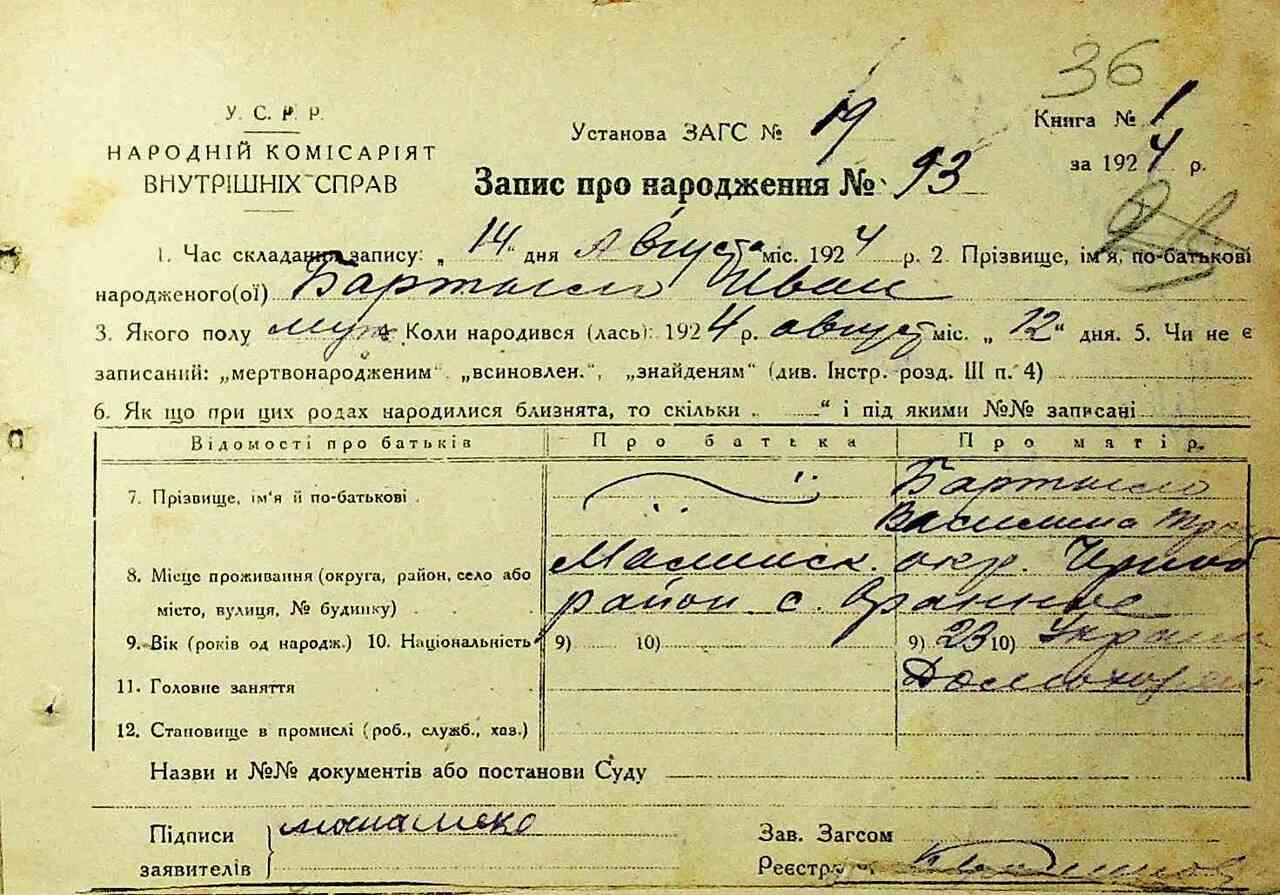 36
У. С. Р. Р.
НАРОДНІЙ КОМІСАРІЯТ
ВНУТРІШНІХ СПРАВ
Установа ЗАГС № 19
Книга № 1
за 1924 р.
Запис про народження № 93
1. Час складання запису: „14" дня Августа міс. 1924 р. 2. Прізвище, ім'я, по-батькові
народженого(ої) Иван
3. Якого полу муж 4. Коли народився (лась): 1924 р. август міс. „12" дня. 5. Чи не є
записаний: „мертвонародженим". „всиновлен.", „знайденям" (див. Інстр. розд. III п. 4)
6. Як що при цих родах народилися близнята, то скільки „ " і під якими №№ записані
Відомості про батьків Про батька Про матір.
7. Прізвище, ім'я й по-батькові .
Василина
8. Місце проживання (округа, район, село або Малинск. окр.
місто, вулиця, № будинку) . . район с.
9. Вік (років од народж.) 10. Національність 9) 10) 9) 23 10)
11. Головне заняття
12. Становище в промислі (роб., служб., хаз.)
Назви и №№ документів або постанови Суду
Підписи
заявителів
Зав. Загсом
Реєстр